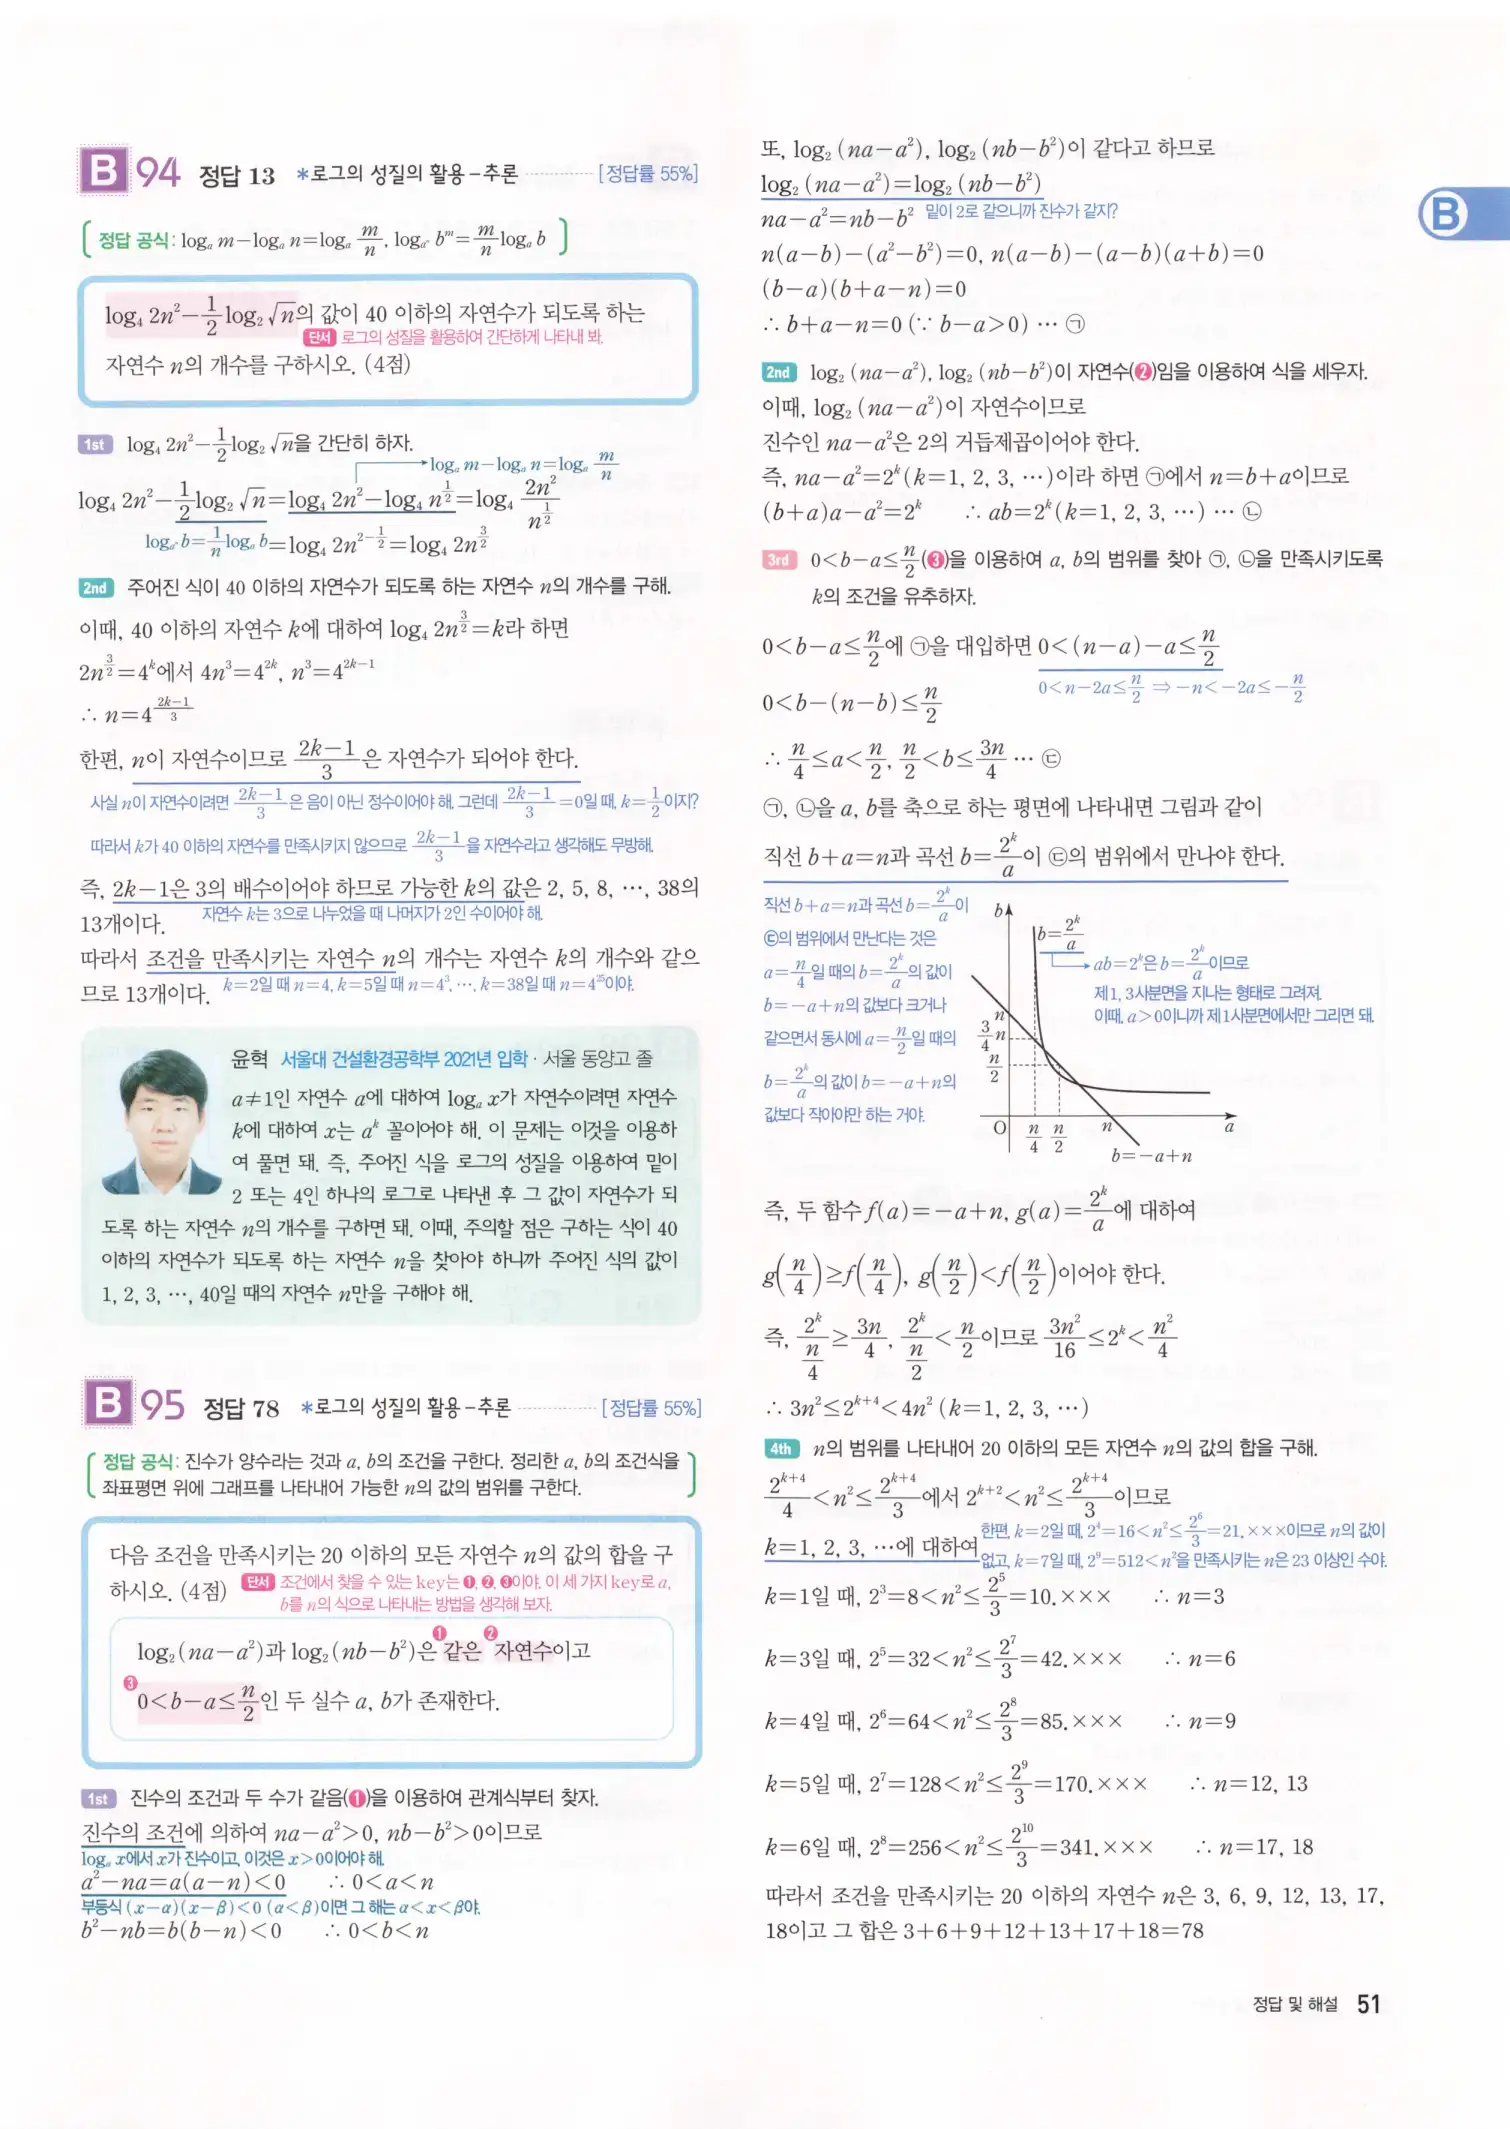 B 94 정답 13 *로그의 성질의 활용-추론 [정답률 55%]
정답 공식: logₐ m−logₐ n=logₐ m/n, log_{aⁿ} bᵐ=m/n logₐ b
log₄ 2n²−1/2 log₂ √n의 값이 40 이하의 자연수가 되도록 하는
단서 로그의 성질을 활용하여 간단하게 나타내 봐.
자연수 n의 개수를 구하시오. (4점)
1st log₄ 2n²−1/2 log₂ √n을 간단히 하자.
logₐ m−logₐ n=logₐ m/n
log₄ 2n²−1/2 log₂ √n=log₄ 2n²−log₄ n^{1/2}=log₄ 2n²/n^{1/2}
log_{aⁿ} b=1/n logₐ b =log₄ 2n^{2−1/2}=log₄ 2n^{3/2}
2nd 주어진 식이 40 이하의 자연수가 되도록 하는 자연수 n의 개수를 구해.
이때, 40 이하의 자연수 k에 대하여 log₄ 2n^{3/2}=k라 하면
2n^{3/2}=4ᵏ에서 4n³=4^{2k}, n³=4^{2k−1}
∴ n=4^{(2k−1)/3}
한편, n이 자연수이므로 (2k−1)/3은 자연수가 되어야 한다.
사실 n이 자연수이려면 (2k−1)/3은 음이 아닌 정수이어야 해. 그런데 (2k−1)/3=0일 때, k=1/2이지?
따라서 k가 40 이하의 자연수를 만족시키지 않으므로 (2k−1)/3을 자연수라고 생각해도 무방해.
즉, 2k−1은 3의 배수이어야 하므로 가능한 k의 값은 2, 5, 8, ⋯, 38의
13개이다. 자연수 k는 3으로 나누었을 때 나머지가 2인 수이어야 해.
따라서 조건을 만족시키는 자연수 n의 개수는 자연수 k의 개수와 같으
므로 13개이다. k=2일 때 n=4, k=5일 때 n=4³, ⋯, k=38일 때 n=4²⁵이야.
윤혁 서울대 건설환경공학부 2021년 입학 · 서울 동양고 졸
a≠1인 자연수 a에 대하여 logₐ x가 자연수이려면 자연수
k에 대하여 x는 aᵏ 꼴이어야 해. 이 문제는 이것을 이용하
여 풀면 돼. 즉, 주어진 식을 로그의 성질을 이용하여 밑이
2 또는 4인 하나의 로그로 나타낸 후 그 값이 자연수가 되
도록 하는 자연수 n의 개수를 구하면 돼. 이때, 주의할 점은 구하는 식이 40
이하의 자연수가 되도록 하는 자연수 n을 찾아야 하니까 주어진 식의 값이
1, 2, 3, ⋯, 40일 때의 자연수 n만을 구해야 해.
B 95 정답 78 *로그의 성질의 활용-추론 [정답률 55%]
정답 공식: 진수가 양수라는 것과 a, b의 조건을 구한다. 정리한 a, b의 조건식을
좌표평면 위에 그래프를 나타내어 가능한 n의 값의 범위를 구한다.
다음 조건을 만족시키는 20 이하의 모든 자연수 n의 값의 합을 구
하시오. (4점) 단서 조건에서 찾을 수 있는 key는 ❶, ❷, ❸이야. 이 세 가지 key로 a,
b를 n의 식으로 나타내는 방법을 생각해 보자.
log₂(na−a²)과 log₂(nb−b²)은 ❶같은 ❷자연수이고
❸0<b−a≤n/2인 두 실수 a, b가 존재한다.
1st 진수의 조건과 두 수가 같음(❶)을 이용하여 관계식부터 찾자.
진수의 조건에 의하여 na−a²>0, nb−b²>0이므로
logₐ x에서 x가 진수이고, 이것은 x>0이어야 해.
a²−na=a(a−n)<0 ∴ 0<a<n
부등식 (x−α)(x−β)<0 (α<β)이면 그 해는 α<x<β야.
b²−nb=b(b−n)<0 ∴ 0<b<n
또, log₂(na−a²), log₂(nb−b²)이 같다고 하므로
log₂(na−a²)=log₂(nb−b²)
na−a²=nb−b² 밑이 2로 같으니까 진수가 같지?
n(a−b)−(a²−b²)=0, n(a−b)−(a−b)(a+b)=0
(b−a)(b+a−n)=0
∴ b+a−n=0 (∵ b−a>0) ⋯ ㉠
2nd log₂(na−a²), log₂(nb−b²)이 자연수(❷)임을 이용하여 식을 세우자.
이때, log₂(na−a²)이 자연수이므로
진수인 na−a²은 2의 거듭제곱이어야 한다.
즉, na−a²=2ᵏ(k=1, 2, 3, ⋯)이라 하면 ㉠에서 n=b+a이므로
(b+a)a−a²=2ᵏ ∴ ab=2ᵏ(k=1, 2, 3, ⋯) ⋯ ㉡
3rd 0<b−a≤n/2(❸)을 이용하여 a, b의 범위를 찾아 ㉠, ㉡을 만족시키도록
k의 조건을 유추하자.
0<b−a≤n/2에 ㉠을 대입하면 0<(n−a)−a≤n/2
0<n−2a≤n/2 ⇒ −n<−2a≤−n/2
0<b−(n−b)≤n/2
∴ n/4≤a<n/2, n/2<b≤3n/4 ⋯ ㉢
㉠, ㉡을 a, b를 축으로 하는 평면에 나타내면 그림과 같이
직선 b+a=n과 곡선 b=2ᵏ/a이 ㉢의 범위에서 만나야 한다.
직선 b+a=n과 곡선 b=2ᵏ/a이
㉢의 범위에서 만난다는 것은
a=n/4일 때의 b=2ᵏ/a의 값이
b=−a+n의 값보다 크거나
같으면서 동시에 a=n/2일 때의
b=2ᵏ/a의 값이 b=−a+n의
값보다 작아야만 하는 거야.
b
b=2ᵏ/a
ab=2ᵏ은 b=2ᵏ/a이므로
제1, 3사분면을 지나는 형태로 그려져.
이때, a>0이니까 제1사분면에서만 그리면 돼.
n
3/4 n
n/2
O n/4 n/2 n a
b=−a+n
즉, 두 함수 f(a)=−a+n, g(a)=2ᵏ/a에 대하여
g(n/4)≥f(n/4), g(n/2)<f(n/2)이어야 한다.
즉, 2ᵏ/(n/4)≥3n/4, 2ᵏ/(n/2)<n/2이므로 3n²/16≤2ᵏ<n²/4
∴ 3n²≤2^{k+4}<4n² (k=1, 2, 3, ⋯)
4th n의 범위를 나타내어 20 이하의 모든 자연수 n의 값의 합을 구해.
2^{k+4}/4<n²≤2^{k+4}/3에서 2^{k+2}<n²≤2^{k+4}/3이므로
한편, k=2일 때, 2⁴=16<n²≤2⁶/3=21.×××이므로 n의 값이
k=1, 2, 3, ⋯에 대하여 없고, k=7일 때, 2⁹=512<n²을 만족시키는 n은 23 이상인 수야.
k=1일 때, 2³=8<n²≤2⁵/3=10.××× ∴ n=3
k=3일 때, 2⁵=32<n²≤2⁷/3=42.××× ∴ n=6
k=4일 때, 2⁶=64<n²≤2⁸/3=85.××× ∴ n=9
k=5일 때, 2⁷=128<n²≤2⁹/3=170.××× ∴ n=12, 13
k=6일 때, 2⁸=256<n²≤2¹⁰/3=341.××× ∴ n=17, 18
따라서 조건을 만족시키는 20 이하의 자연수 n은 3, 6, 9, 12, 13, 17,
18이고 그 합은 3+6+9+12+13+17+18=78
B
정답 및 해설 51